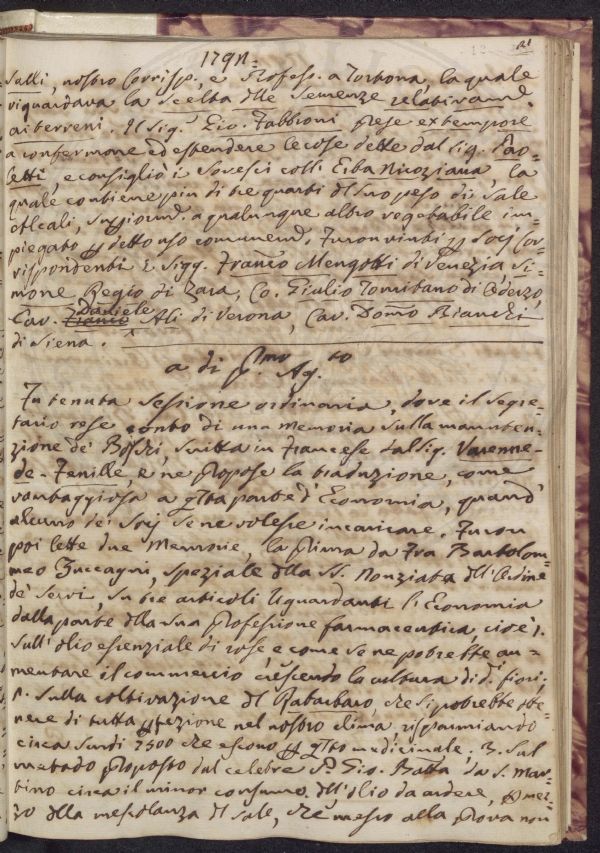 1791.
salli, nostro Corrisp., e Profess. a Tortona, la quale
riguardava la scelta delle Semenze relativamd.
ai terreni. Il Sig. Gio. Fabbroni prese extempore
a confermare ed estendere le cose dette dal Sig. Pao=
letti, e consigliò i Sovesci coll' Erba Nicoziana, la
quale contiene più di tre quarti del suo peso di Sale
Alcali, superiormd. a qualunque altro vegetabile im=
piegato p detto uso comunemd. Furon vinti p Socj Cor=
rispondenti i Sigg. Franco Mengotti di Venezia Si=
mone Regio di Zara, Co. Giulio Tomitano di Oderzo,
Daniele
Cav. Franco Ali di Verona, Cav. Domo Bianchi
di Siena.
a di pmo Ag.to
Fu tenuta Sessione ordinaria, dove il Segre=
tario rese conto di una Memoria sulla manuten=
zione de' Boschi, scritta in Francese dal Sig. Varenne=
de=Fenille, e ne propose la traduzione, come
vantaggiosa a qsta parte d' Economia, quand'
alcuno de' Socj se ne volesse incaricare. Furon
poi lette due Memorie, la prima da Fra Bartolom=
meo Zuccagni, Speziale della SS. Nonziata dell' Ordine
de' Servi, su tre articoli riguardanti l' Economia
dalla parte della sua professione farmaceutica, cioè 1.
sull' olio essenziale di rose e come se ne potrebbe au=
mentare il commercio crescendo la cultura di d. fiori;
2. sulla coltivazione del Rabarbaro, che si potrebbe otte=
nere di tutta pfezione nel nostro clima, risparmiando
circa Scudi 2500 che escono p qsto medicinale; 3. sul
metodo proposto dal celebre P. Gio. Batta da S. Mar=
tino circa il minor consumo dell' olio da ardere, p mez=
zo della mescolanza del Sale, che messo alla prova non